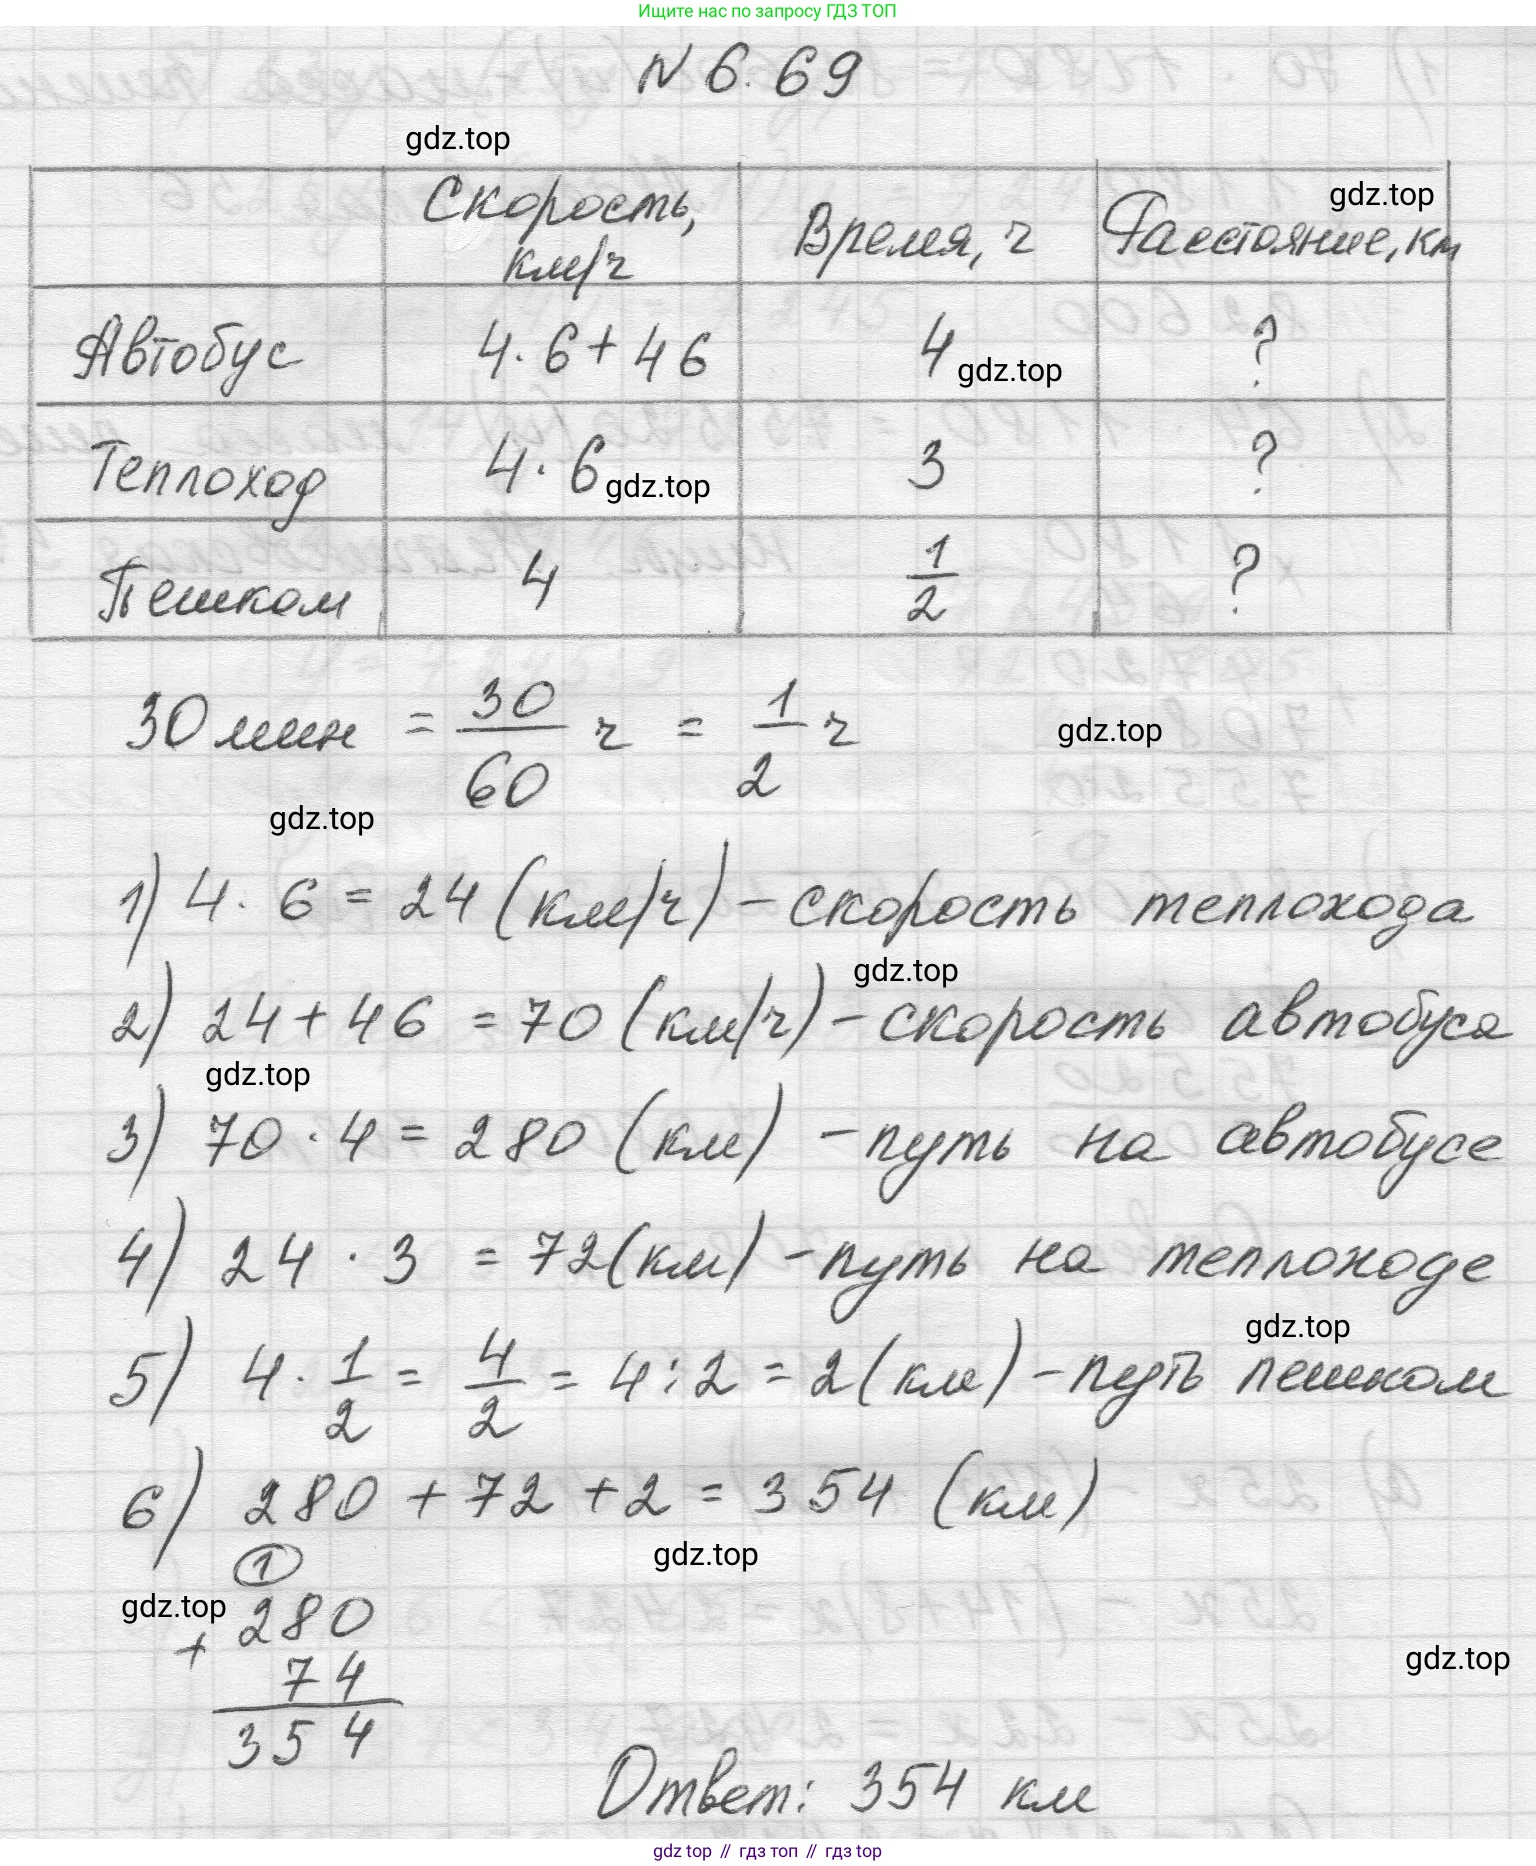 Ищите нас по запросу ГДЗ ТОП
N 6.69
gdz.top
Скорость, км/ч | Время, ч | Расстояние, км
gdz.top
Автобус | 4·6+46 | 4 | ?
gdz.top
Теплоход | 4·6 | 3 | ?
gdz.top
Пешком | 4 | 1/2 | ?
30 мин = 30/60 ч = 1/2 ч
gdz.top
gdz.top
1) 4·6 = 24 (км/ч) - скорость теплохода
gdz.top
2) 24+46 = 70 (км/ч) - скорость автобуса
gdz.top
3) 70·4 = 280 (км) - путь на автобусе
4) 24·3 = 72 (км) - путь на теплоходе
gdz.top
5) 4·1/2 = 4/2 = 4:2 = 2 (км) - путь пешком
6) 280 + 72 + 2 = 354 (км)
gdz.top
1
gdz.top
280
+
74
gdz.top
354
Ответ: 354 км
gdz top // гдз топ // гдз top